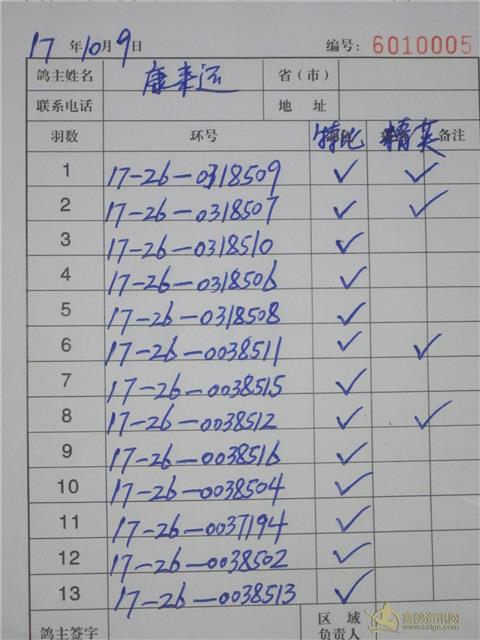 17 年 10 月 9 日 编号: 6010005
鸽主姓名 康奉运 省(市)
联系电话 地 址
羽数 环号 特比 精英 备注
1 17-26-0318509 ✓ ✓
2 17-26-0318507 ✓ ✓
3 17-26-0318510 ✓
4 17-26-0318506 ✓
5 17-26-0318508 ✓
6 17-26-0038511 ✓ ✓
7 17-26-0038515 ✓
8 17-26-0038512 ✓ ✓
9 17-26-0038516 ✓
10 17-26-0038504 ✓
11 17-26-0037194 ✓
12 17-26-0038502 ✓
13 17-26-0038513 ✓
鸽主签字 区 域
负责人
赛鸽资讯网
www.saige.com